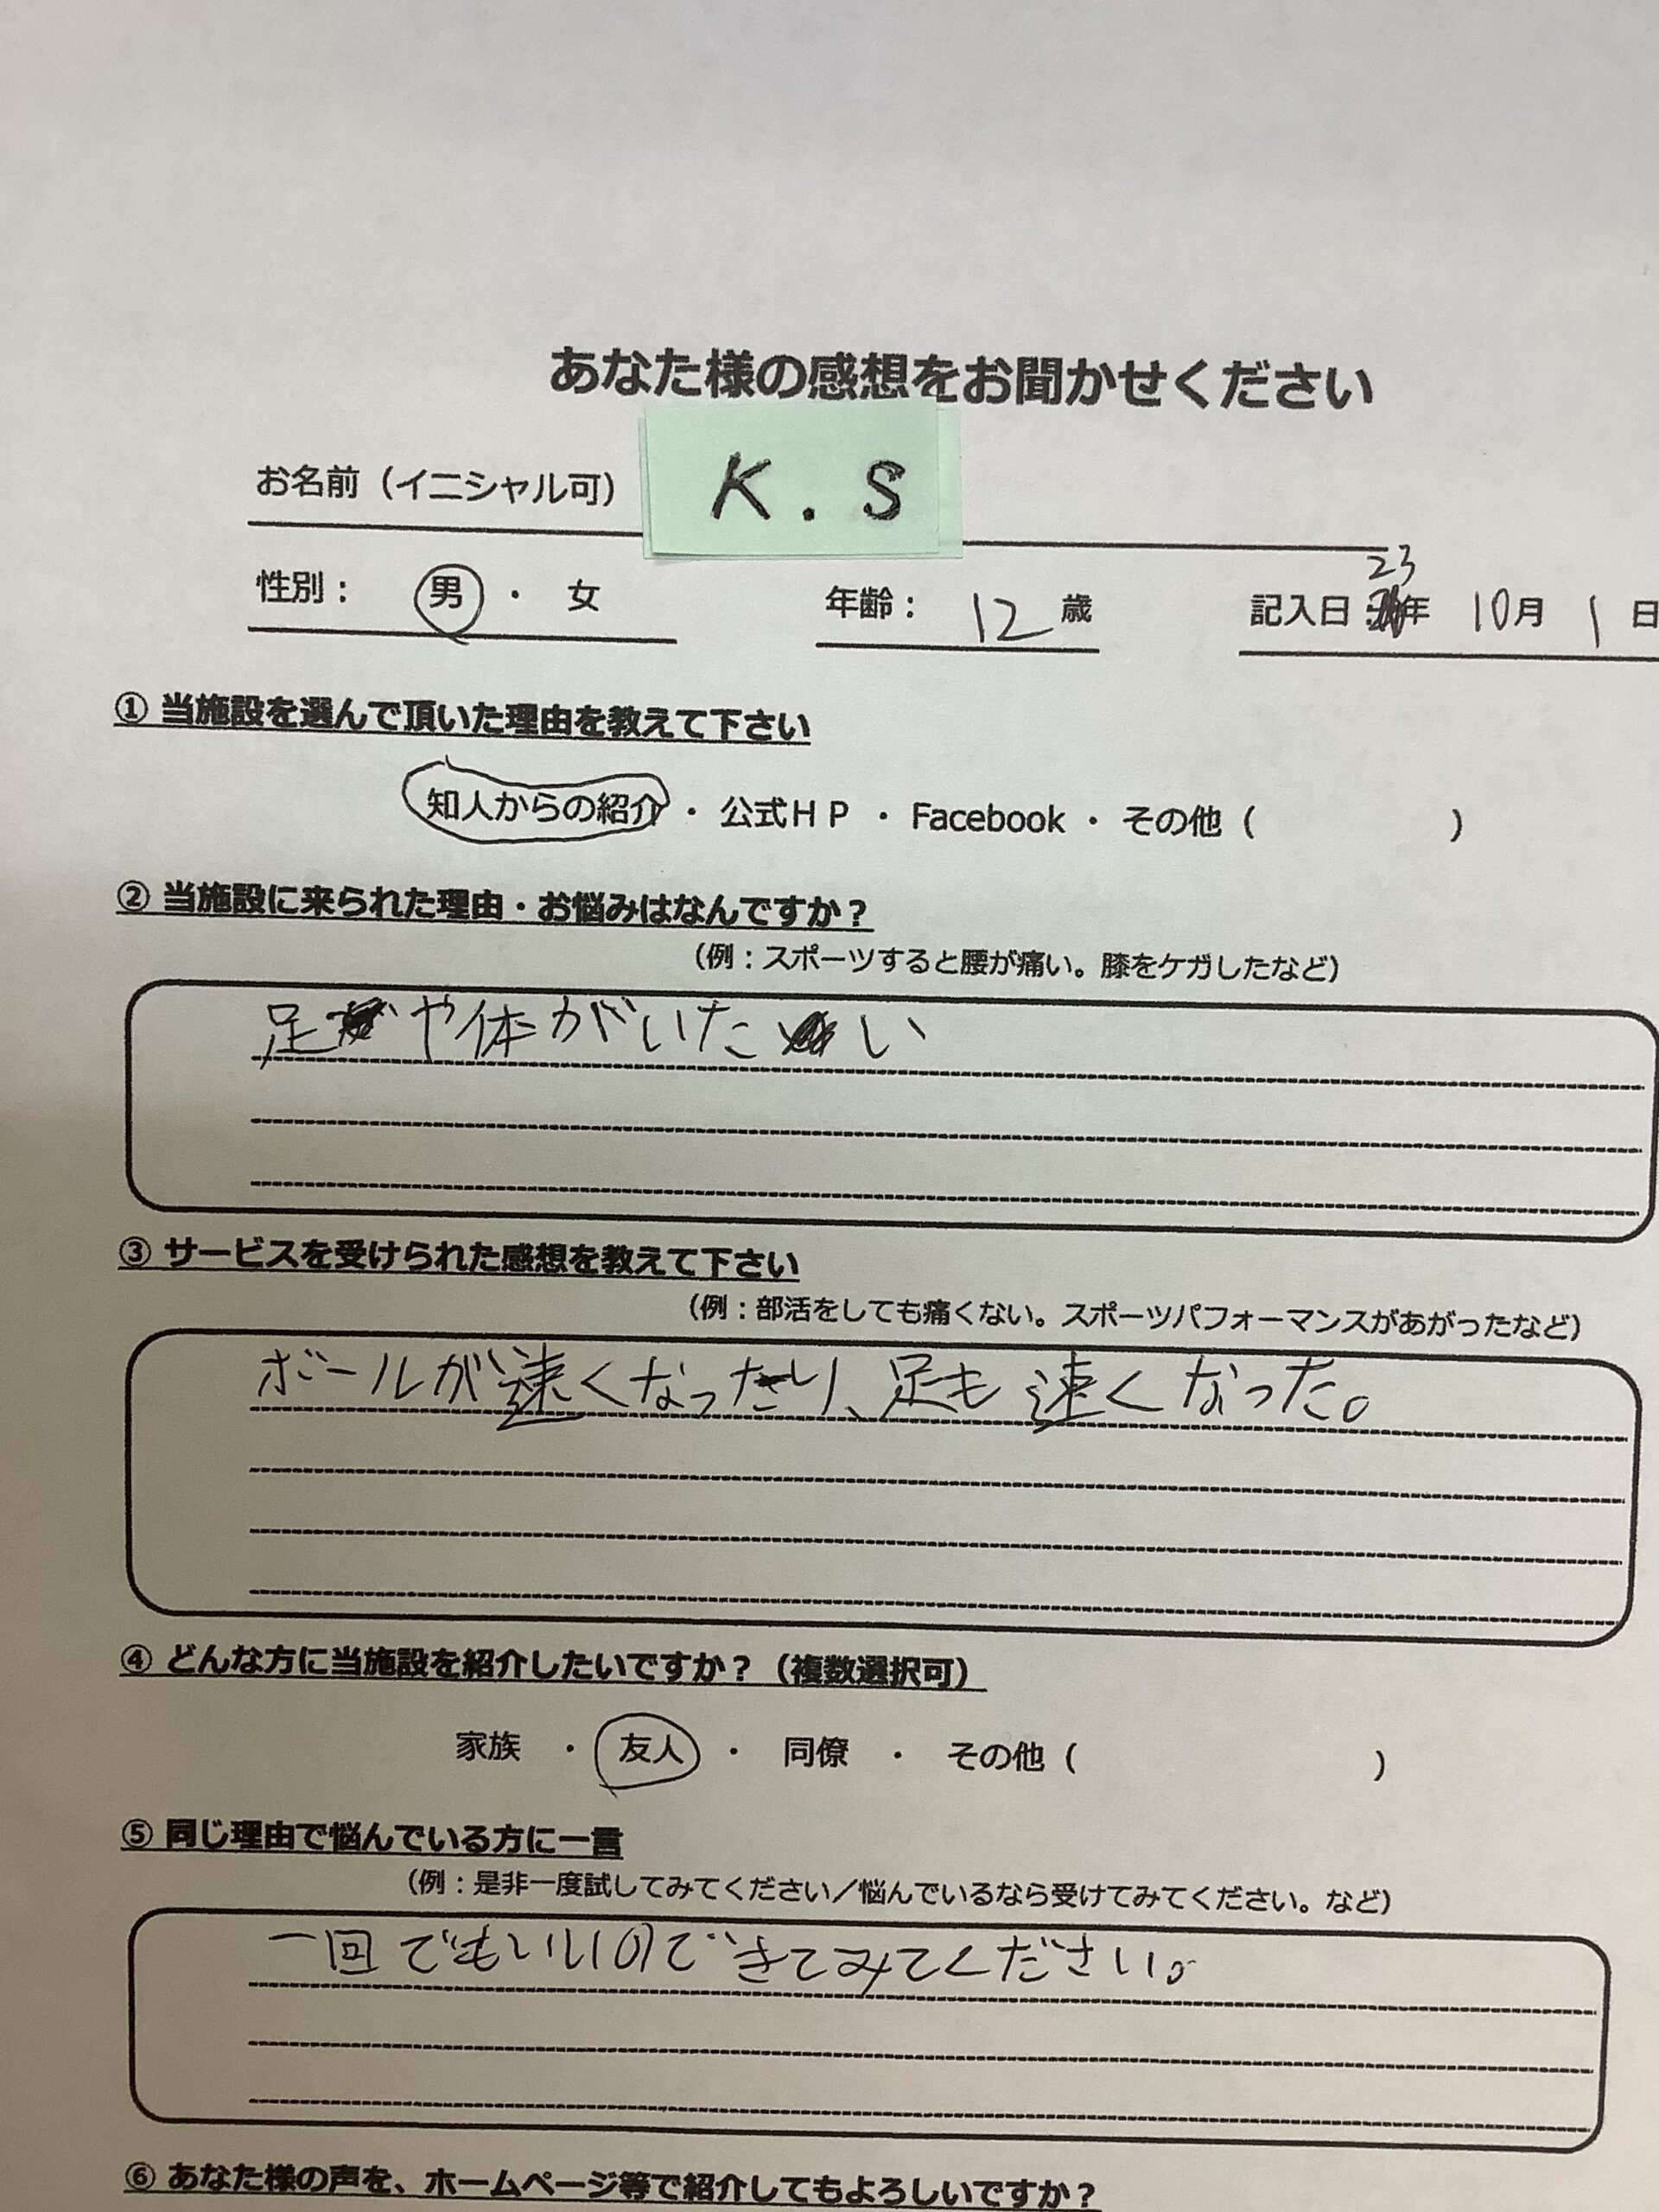 あなた様の感想をお聞かせください
お名前（イニシャル可） K.S
性別： 男 ・ 女 年齢： 12 歳 記入日： 23年 10月 1日
① 当施設を選んで頂いた理由を教えて下さい
知人からの紹介 ・ 公式ＨＰ ・ Facebook ・ その他（ ）
② 当施設に来られた理由・お悩みはなんですか？
（例：スポーツすると腰が痛い。膝をケガしたなど）
足や体がいたい
③ サービスを受けられた感想を教えて下さい
（例：部活をしても痛くない。スポーツパフォーマンスがあがったなど）
ボールが速くなったり、足も速くなった。
④ どんな方に当施設を紹介したいですか？（複数選択可）
家族 ・ 友人 ・ 同僚 ・ その他（ ）
⑤ 同じ理由で悩んでいる方に一言
（例：是非一度試してみてください／悩んでいるなら受けてみてください。など）
一回でもいいので、きてみてください。
⑥ あなた様の声を、ホームページ等で紹介してもよろしいですか？